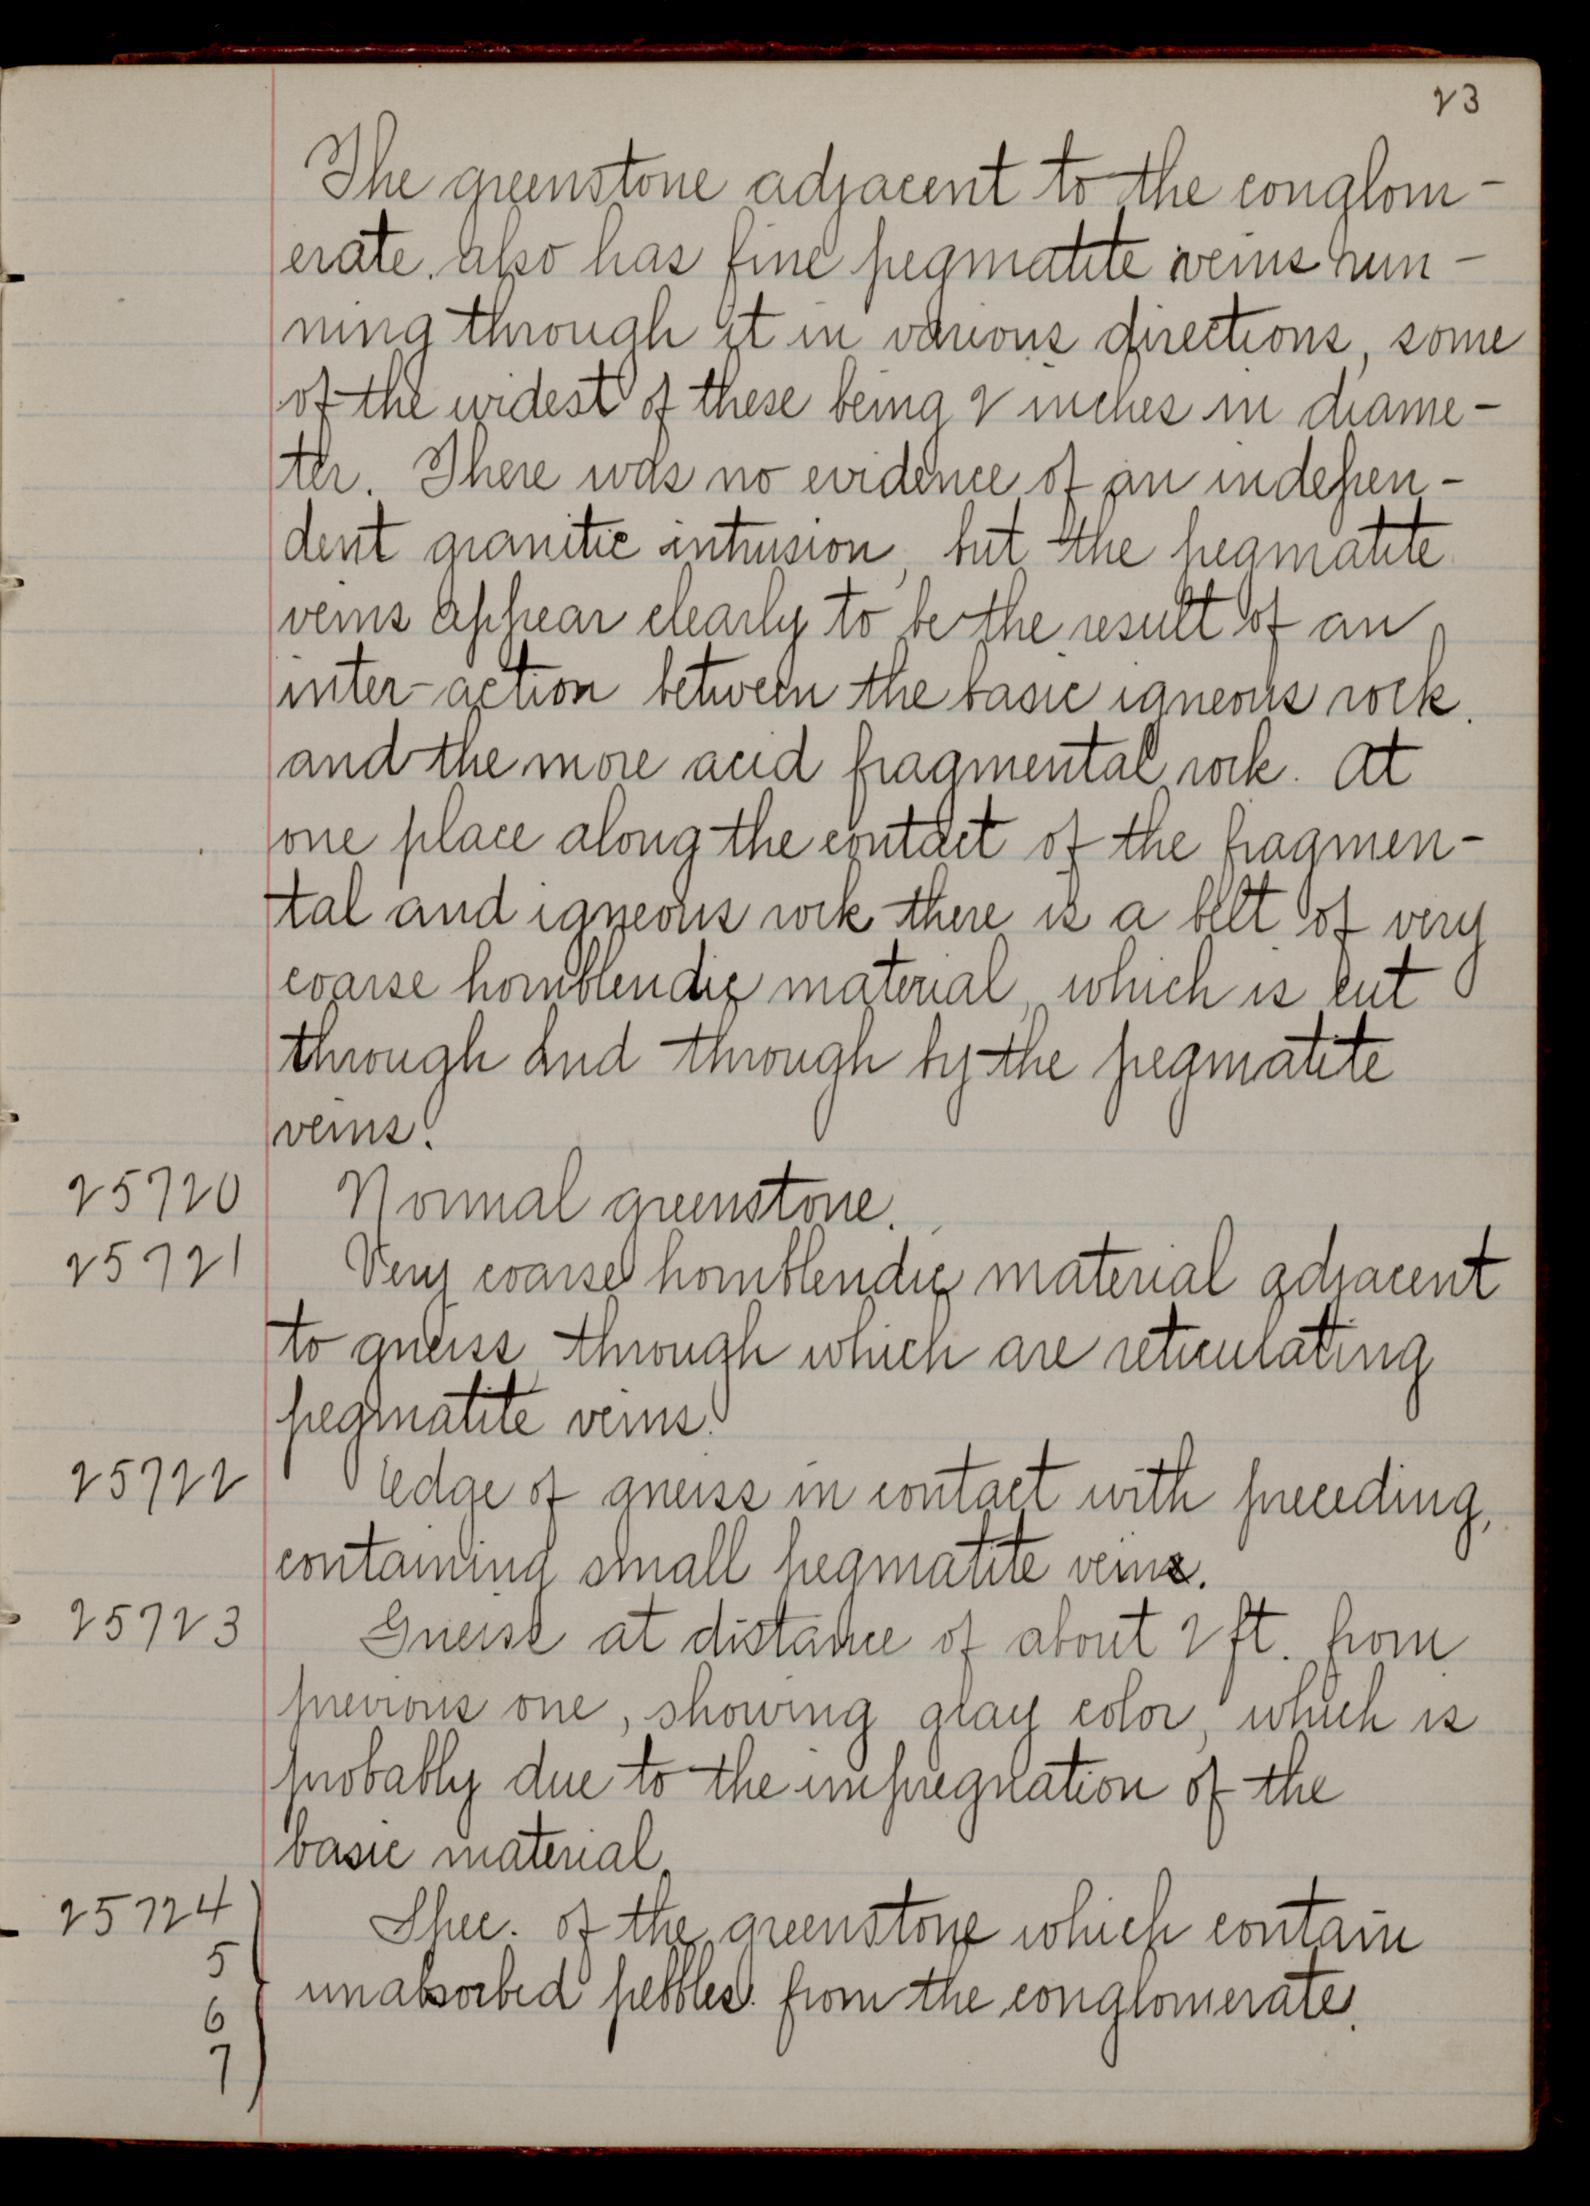 23
The greenstone adjacent to the conglom-
erate also has fine pegmatite veins run-
ning through it in various directions, some
of the widest of these being 2 inches in diame-
ter. There was no evidence of an indepen-
dent granitic intrusion, but the pegmatite
veins appear clearly to be the result of an
inter-action between the basic igneous rock
and the more acid fragmental rock. At
one place along the contact of the fragmen-
tal and igneous rock there is a belt of very
coarse hornblendic material, which is cut
through and through by the pegmatite
veins.
25720 Normal greenstone.
25721 Very coarse hornblendic material adjacent
to gneiss, through which are reticulating
pegmatite veins.
25722 Edge of gneiss in contact with preceding,
containing small pegmatite veins.
25723 Gneiss at distance of about 2 ft. from
previous one, showing gray color, which is
probably due to the impregnation of the
basic material.
25724 Spec. of the greenstone which contain
5
unabsorbed pebbles from the conglomerate.
6
7